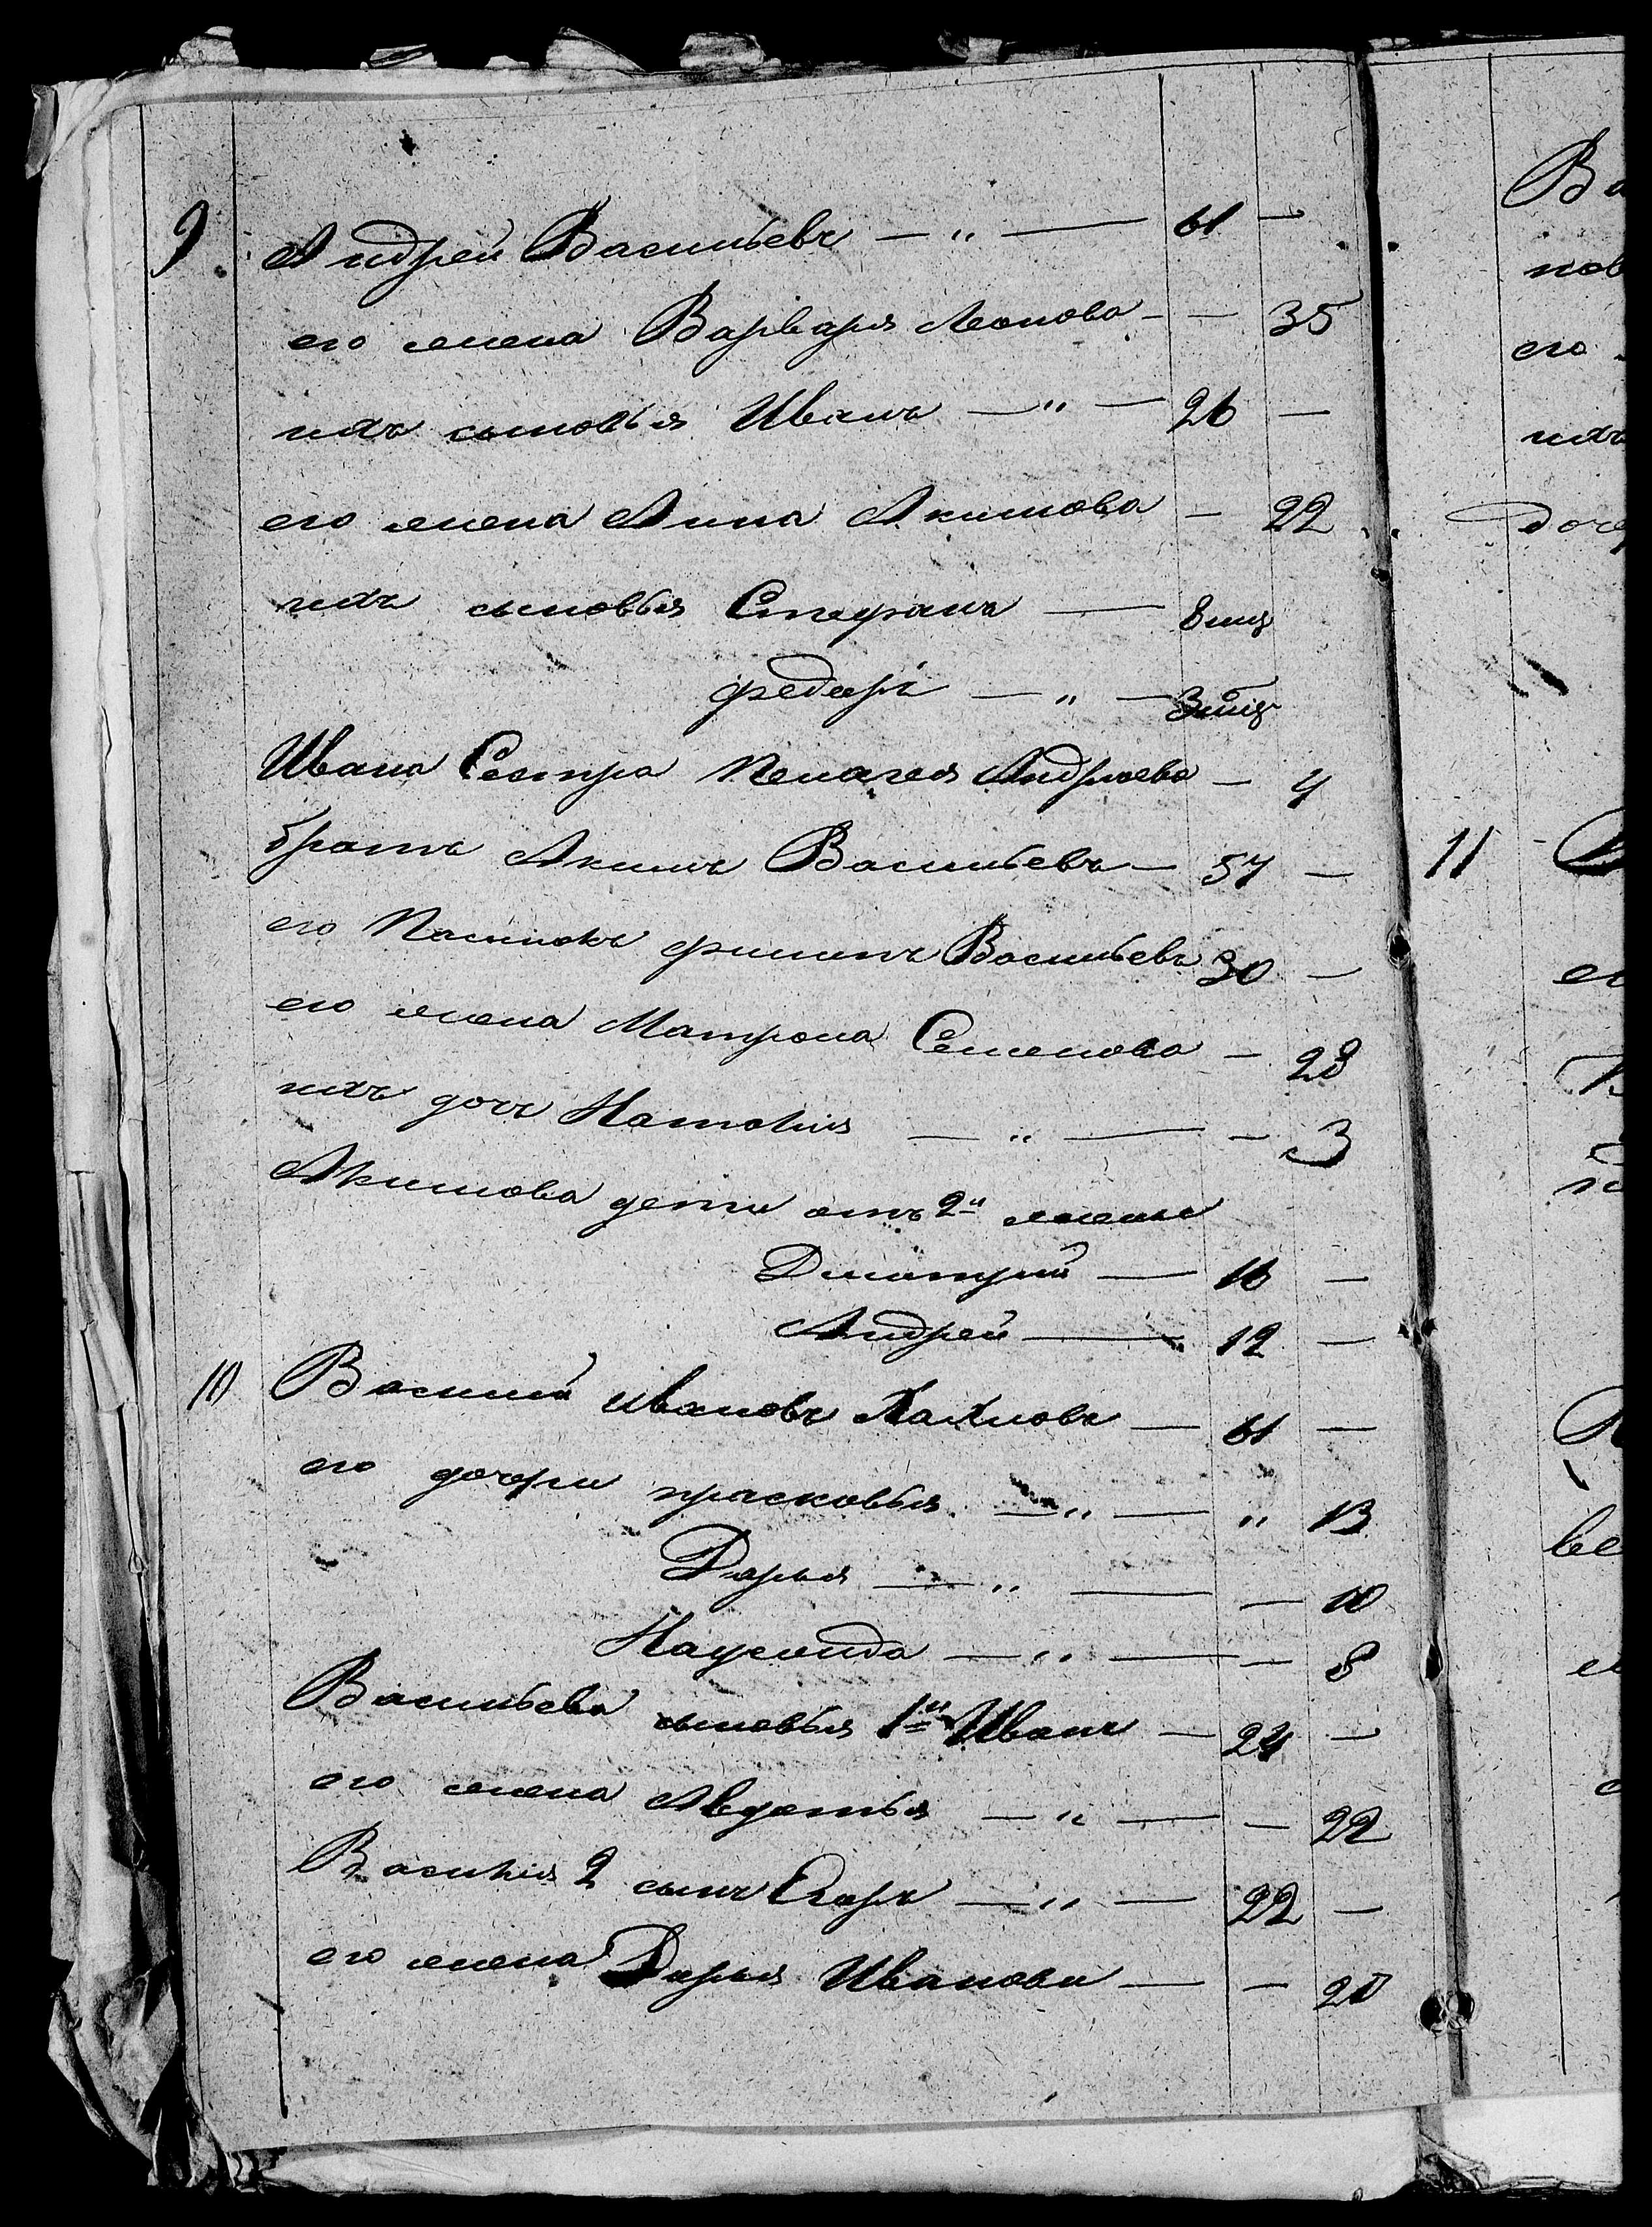 9. Андрей Васильевъ — „ — 61 —
его жена Варвара Леонова — — 35
ихъ сыновья Иванъ — „ — 26 —
его жена Анна Акимова — 22
ихъ сыновья Стефанъ — 8 мцъ
Федоръ — „ — 3 мцъ
Ивана Сестра Пелагея Андреева — 4
братъ Акимъ Васильевъ — 57 —
его Пасынокъ Филипъ Васильевъ 30 —
его жена Матрона Семенова — 28
ихъ дочь Наталия — „ — — 3
Акимова дети отъ 2й жены
Дмитрий — 16 —
Андрей — 12 —
10 Василий Ивановъ — 61 —
его дочери прасковья — „ — „ 13
Дарья — „ — — 10
— „ — — 8
Васильева сыновья 1й Иванъ — 24 —
его жена Авдотья — „ — — 22
Василия 2 сынъ Егоръ — „ — 22 —
его жена Дарья Иванова — — 20
Ва
нов
его
ихъ
доче
11
ве